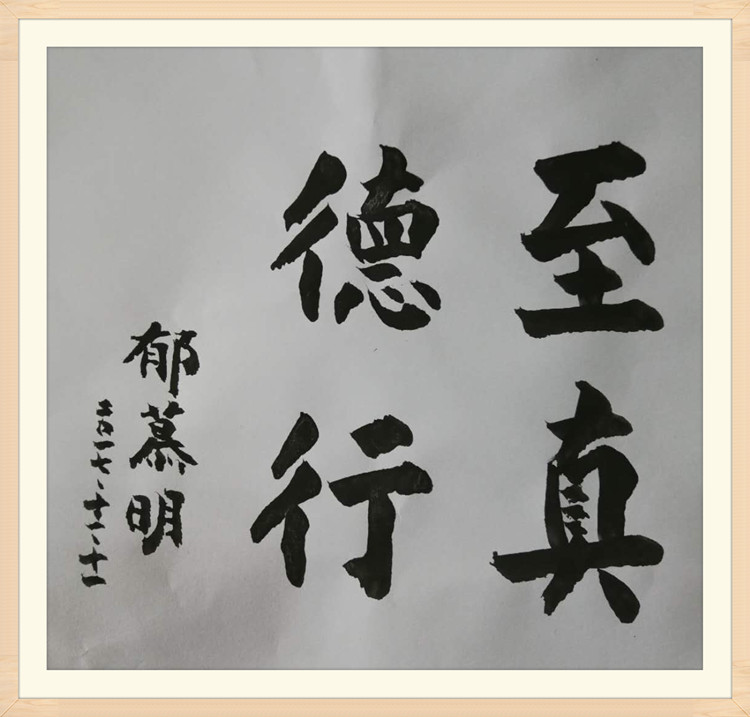 至真
德行
郁慕明
二〇一七、十一、十一